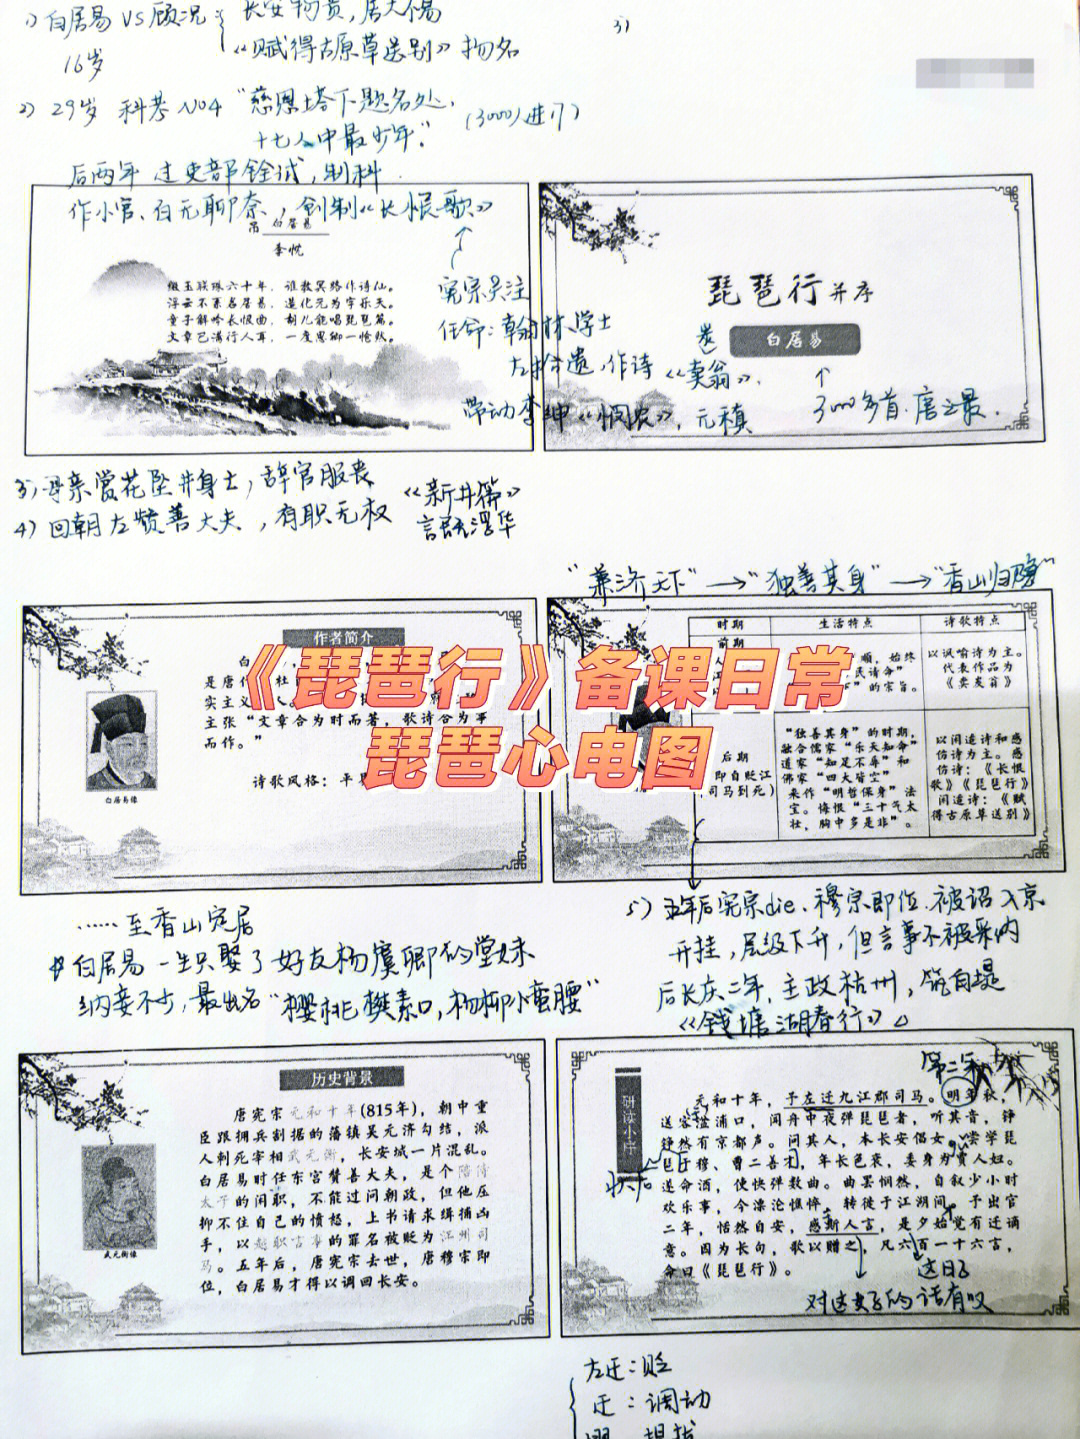 1) 白居易 VS 顾况
长安物贵,居大不易
16岁
《赋得古原草送别》扬名
3)
2) 29岁 科考 NO4 "慈恩塔下题名处,
十七人中最少年."
(3000人进17)
后两年 过吏部铨试,制科.
作小官、白元聊奈,创制《长恨歌》
吊 白居易
李忱
缀玉联珠六十年,谁教冥路作诗仙。
浮云不系名居易,造化无为字乐天。
童子解吟长恨曲,胡儿能唱琵琶篇。
文章已满行人耳,一度思卿一怆然。
宪宗关注
任命:翰林学士
左拾遗,作诗《卖翁》.
炭
带动李绅《悯农》,元稹
琵琶行并序
白居易
3000多首.唐之最.
3) 母亲赏花坠井身亡,辞官服丧
《新井篇》
4) 回朝左赞善大夫,有职无权
言既浮华
"兼济天下"→"独善其身"→"香山归隐"
作者简介
是唐代
实主义
主张"文章合为时而著,歌诗合为事
而作。"
诗歌风格:平
白居易像
时期 生活特点 诗歌特点
前期
顺,始终
民请命"
的宗旨。
以讽喻诗为主。
代表作品为
《卖炭翁》
后期
即自贬江
司马到死)
"独善其身"的时期,
融合儒家"乐天知命"
道家"知足不辱"和
佛家"四大皆空"
来作"明哲保身"法
宝。悔恨"三十气太
壮,胸中多是非"。
以闲适诗和感
伤诗为主。感
伤诗:《长恨
歌》《琵琶行》
闲适诗:《赋
得古原草送别》
《琵琶行》备课日常
琵琶心电图
……至香山定居
白居易一生只娶了好友杨虞卿的堂妹
纳妾不少,最出名"樱桃樊素口,杨柳小蛮腰"
5) 五年后宪宗die.穆宗即位.被诏入京
开挂,层级下升,但言事不被采纳
后长庆二年,主政杭州,筑白堤
《钱塘湖春行》
历史背景
唐宪宗元和十年(815年),朝中重
臣跟拥兵割据的藩镇吴元济勾结,派
人刺死宰相武元衡,长安城一片混乱。
白居易时任东宫赞善大夫,是个陪侍
太子的闲职,不能过问朝政,但他压
抑不住自己的愤怒,上书请求缉捕凶
手,以越职言事的罪名被贬为江州司
马。五年后,唐宪宗去世,唐穆宗即
位,白居易才得以调回长安。
武元衡像
第二年
元和十年,予左迁九江郡司马。明年秋,
送客湓浦口,闻舟中夜弹琵琶者,听其音,铮
铮然有京都声。问其人,本长安倡女,尝学琵
琶于穆、曹二善才,年长色衰,委身为贾人妇。
遂命酒,使快弹数曲。曲罢悯然,自叙少小时
欢乐事,今漂沦憔悴,转徙于江湖间。予出官
二年,恬然自安,感斯人言,是夕始觉有迁谪
意。因为长句,歌以赠之,凡六百一十六言,
命曰《琵琶行》。
状后
这日子
对这妹子的话有叹
左迁:贬
迁:调动